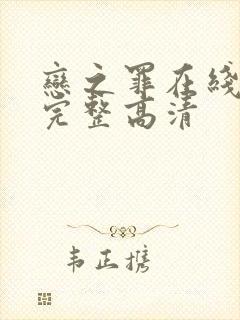 戀之罪在綫
完整高清
韦正携